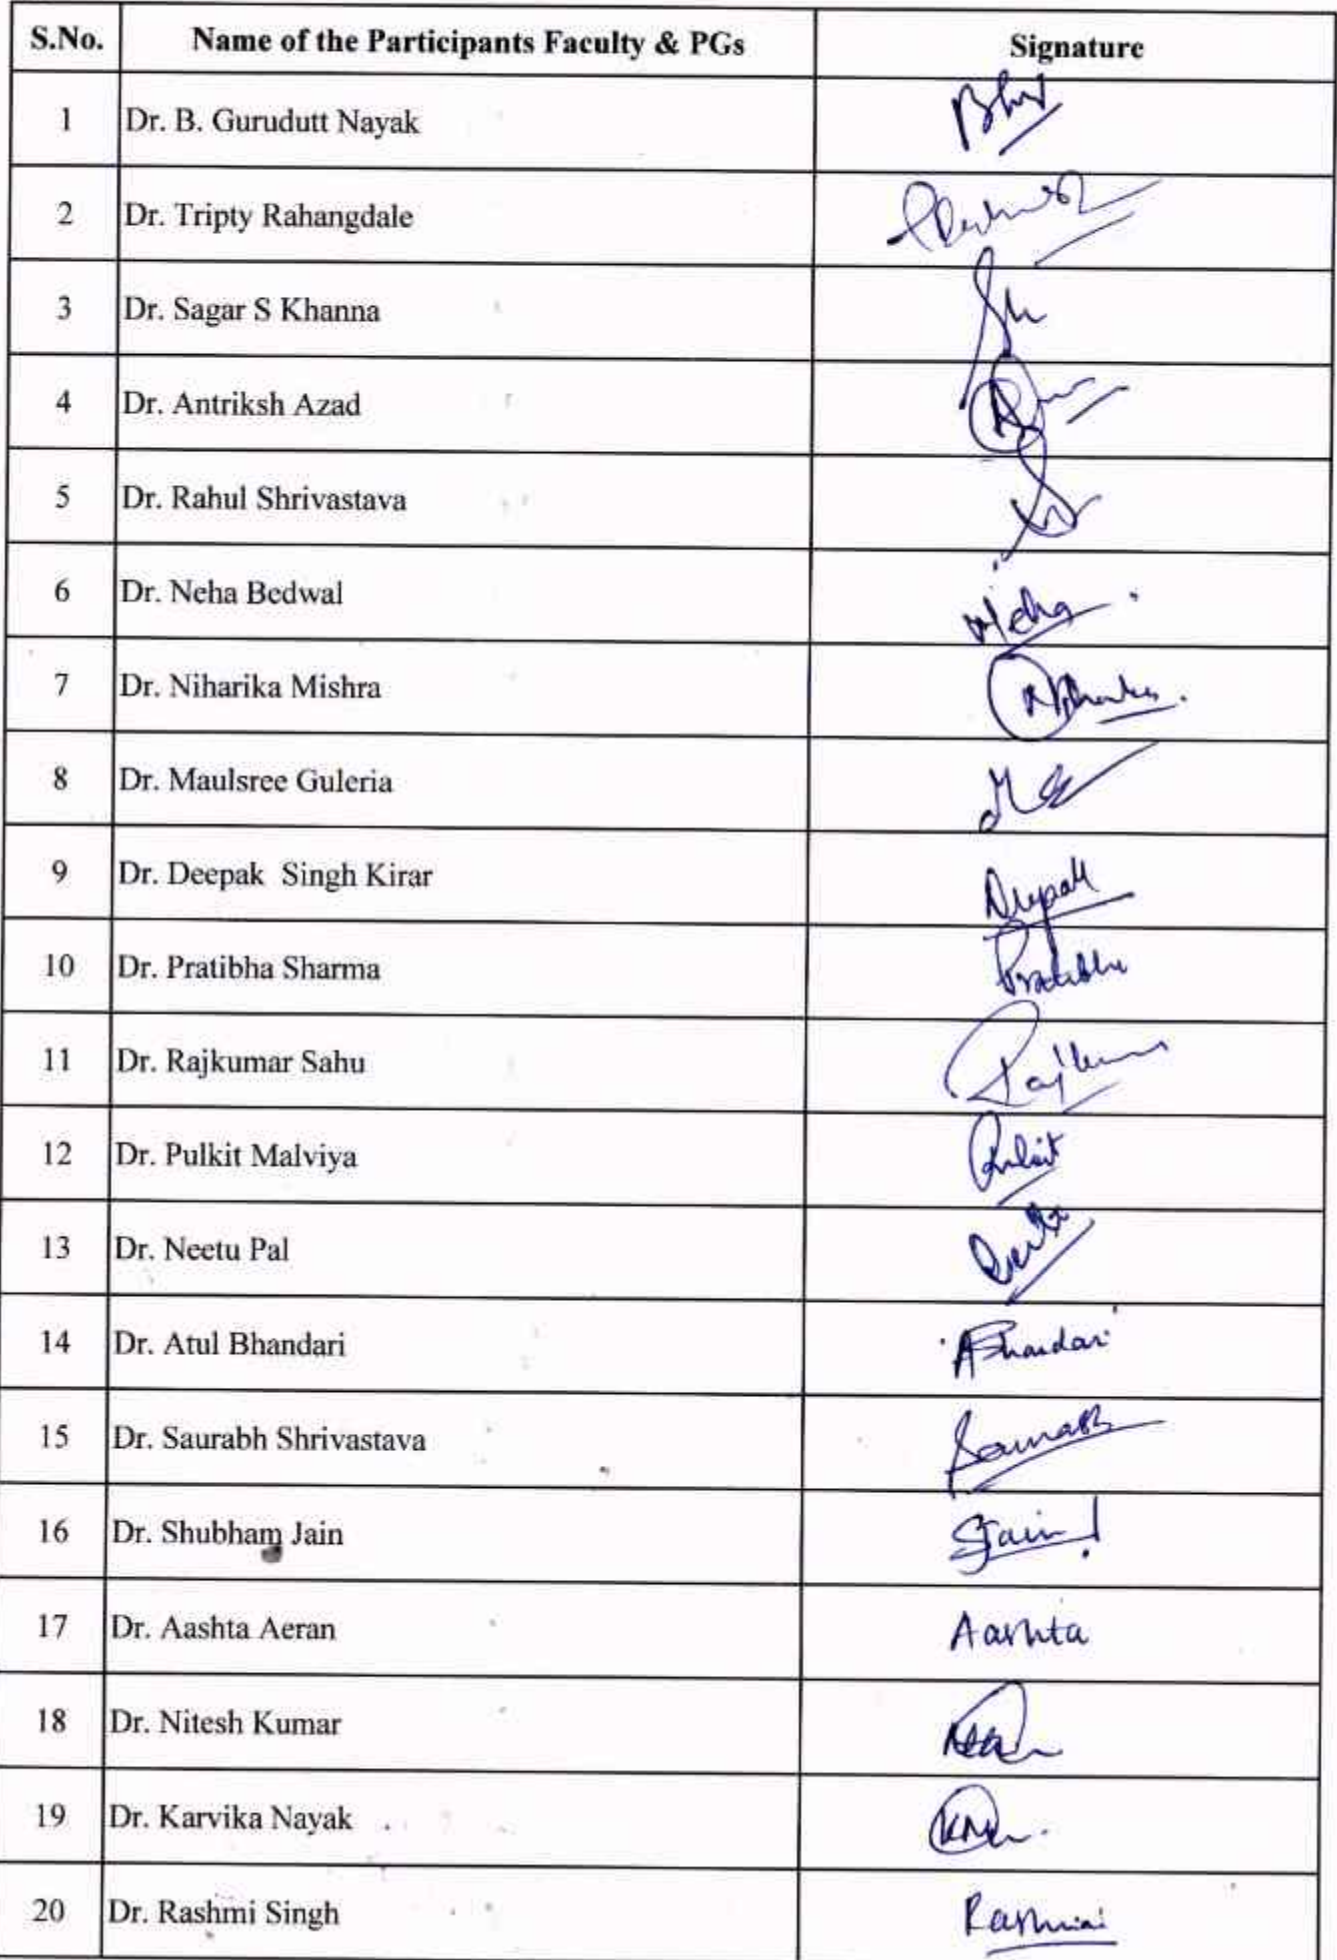 S.No. Name of the Participants Faculty & PGs Signature
1 Dr. B. Gurudutt Nayak
2 Dr. Tripty Rahangdale
3 Dr. Sagar S Khanna
4 Dr. Antriksh Azad
5 Dr. Rahul Shrivastava
6 Dr. Neha Bedwal Neha
7 Dr. Niharika Mishra
8 Dr. Maulsree Guleria
9 Dr. Deepak Singh Kirar Deepak
10 Dr. Pratibha Sharma Pratibha
11 Dr. Rajkumar Sahu Rajkumar
12 Dr. Pulkit Malviya Pulkit
13 Dr. Neetu Pal
14 Dr. Atul Bhandari ABhandari
15 Dr. Saurabh Shrivastava Saurabh
16 Dr. Shubham Jain SJain
17 Dr. Aashta Aeran Aashta
18 Dr. Nitesh Kumar
19 Dr. Karvika Nayak
20 Dr. Rashmi Singh Rashmi